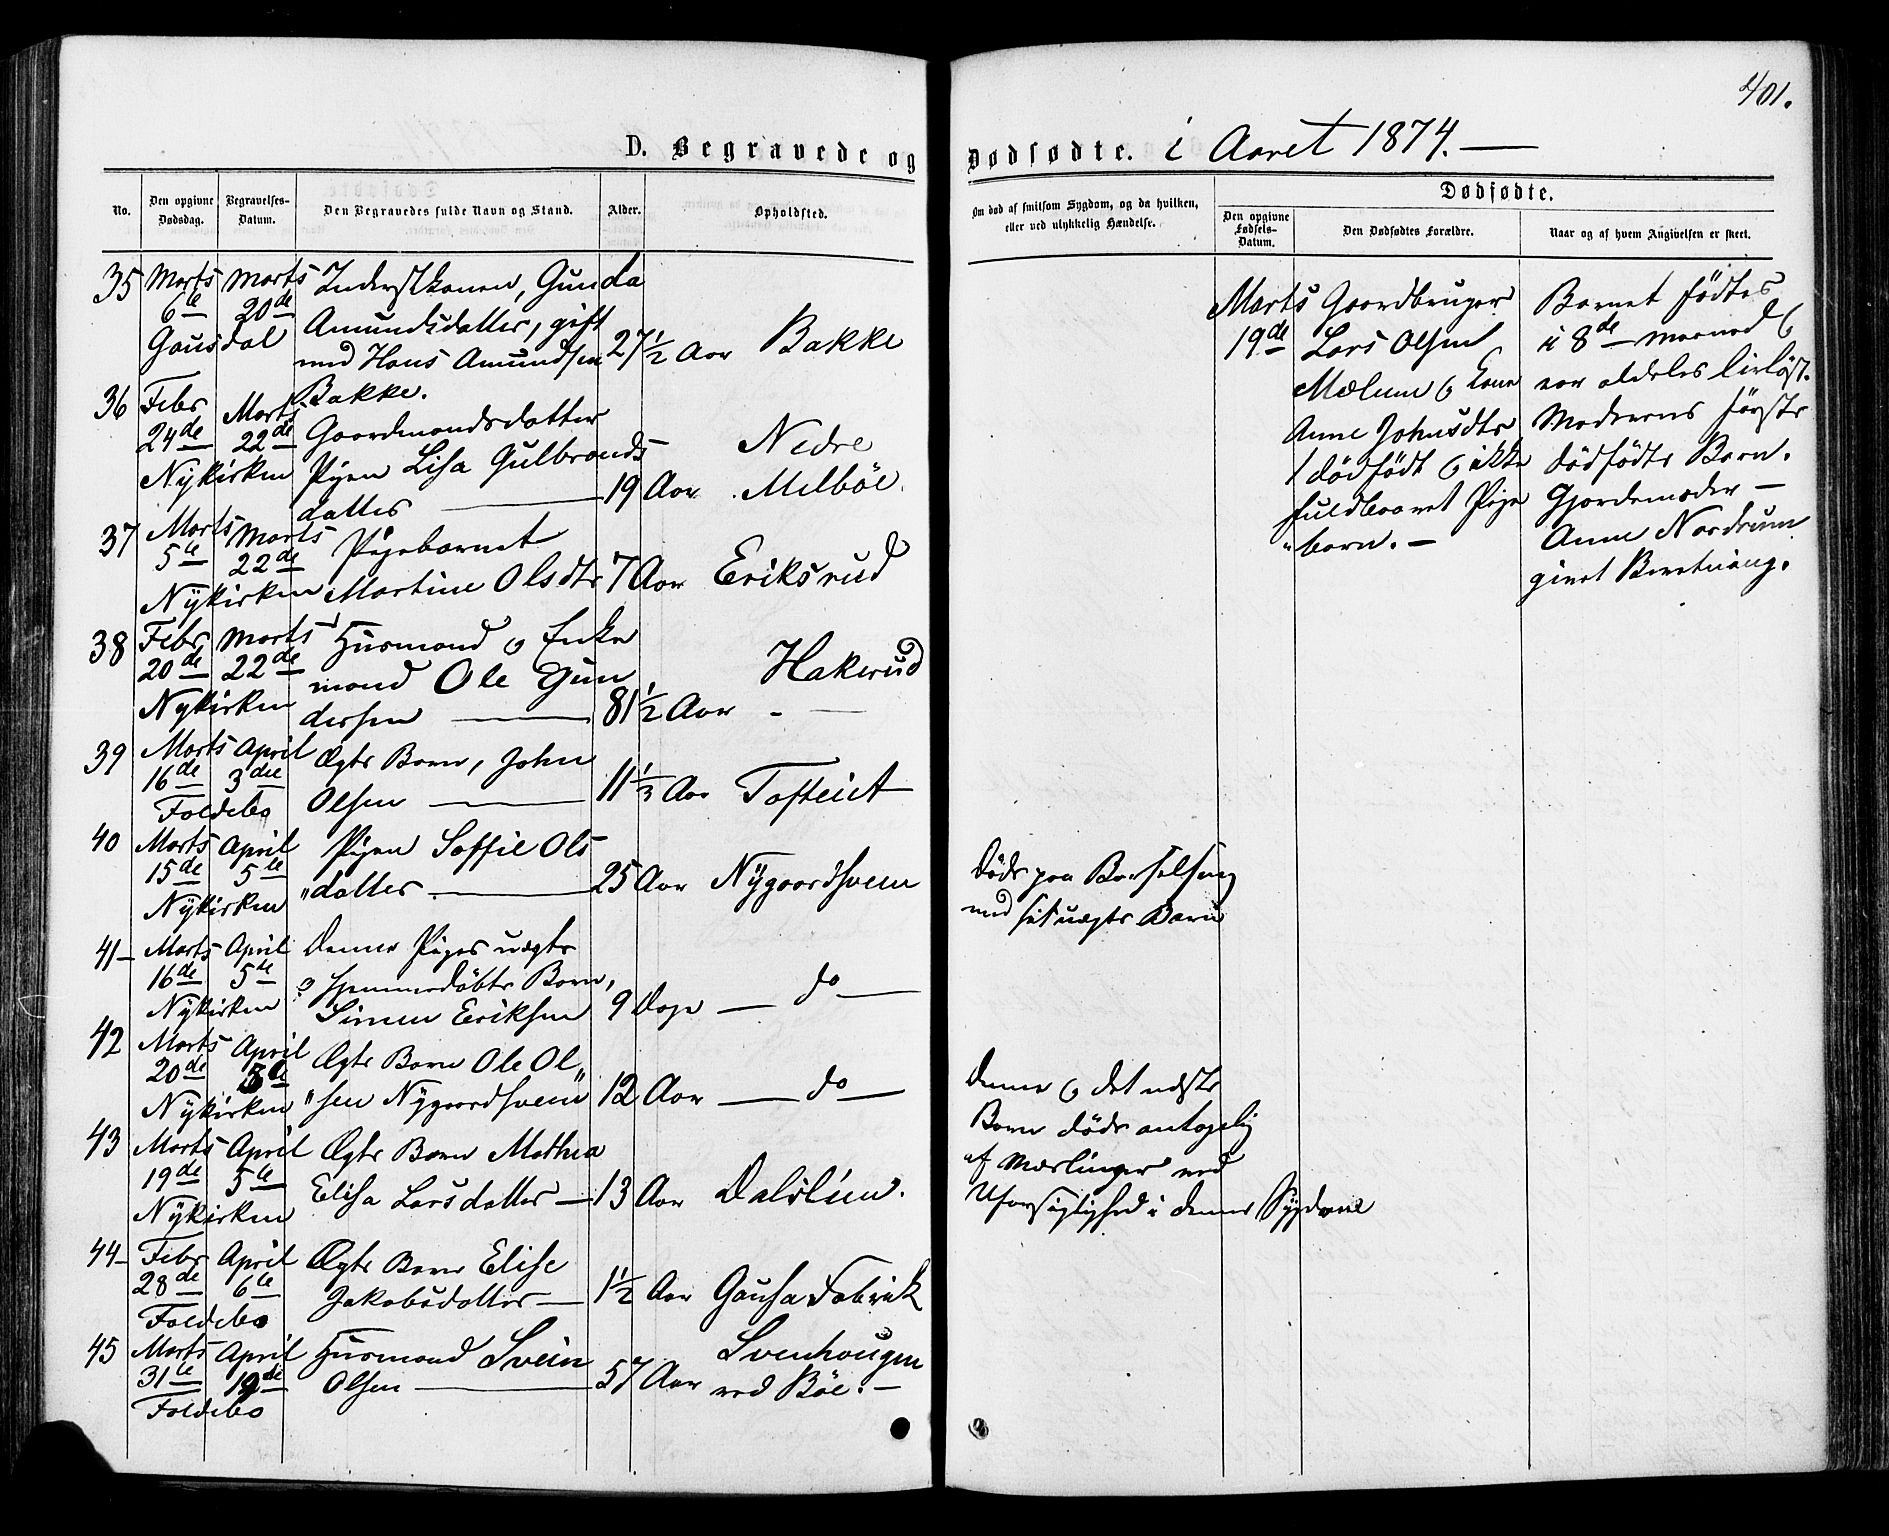 401.
D. Begravede og Dødfødte. i Aaret 1874. —
No.
Den opgivne Dødsdag.
Begravelses-Datum.
Den Begravedes fulde Navn og Stand.
Alder.
Opholdsted.
Om død af smitsom Sygdom, og da hvilken, eller ved ulykkelig Hændelse.
Dødfødte.
Den opgivne Fødsels-Datum.
Den Dødfødtes Forældre.
Naar og af hvem Angivelsen er skeet.
35 Marts Marts Inderstkonen, Gunda
6te 20de Amundsdatter, gift
Gausdal med Hans Amundsen 27 1/2 Aar Bakke
Bakke.
36 Febr Marts Gaardmandsdatter
24de 22de Pigen Lisa Gulbrands Nedre
Nykirken datter — 19 Aar Melbøe.
37 Marts Marts Pigebarnet
5te 22de Martine Olsdtr 7 Aar Eriksrud
Nykirken
38 Febr Marts Husmand og Enke
20de 22de mand Ole Gun Hakerud
Nykirken dersen — 81 1/2 Aar - —
39 Marts April Ægte Barn, John
16de 3die Olsen — 11 1/3 Aar Tofteiet
Foldebo
40 Marts April Pigen Soffie Ols
15de 5te "datter — 25 Aar Nygaardsveen
Nykirken
41 — Marts April Denne Piges uægte
16de 5te og hjemmedøbte Barn,
Nykirken Simen Eriksen 9 Dage — do —
42 Marts April Ægte Barn Ole Ol„
20de 5te "sen Nygaardsveen 12 Aar — do —
Nykirken
43 Marts April Ægte Barn Mathea
19de 5te Elisa Larsdatter — 13 Aar Dalslien.
Nykirken
44 — Febr April Ægte Barn Elise
28de 6te Jakobsdatter — 1 1/2 Aar Gausa Fabrik
Foldebo
45 Marts April Husmand Svein Svenhougen
31te 19de Olsen — 57 Aar ved Bøe. —
Foldebo
døde paa Barselseng
med sit uægte Barn
Denne og det næste
Barn døde antagelig
af Mæslinger ved
Uforsigtighed i denne Sygdom
Marts
19de
Gaardbruger
Lars Olsen
Mælum og Kone
Anne Johnsdtr
1 dødfødt og ikke
fuldbaaret Pige
"barn. —
Barnet fødtes
i 8de Maaned og
var aldeles livløst.
Moderens første
dødfødte Barn.
Gjordemoder —
Anne Nordrum
givet Beretning.